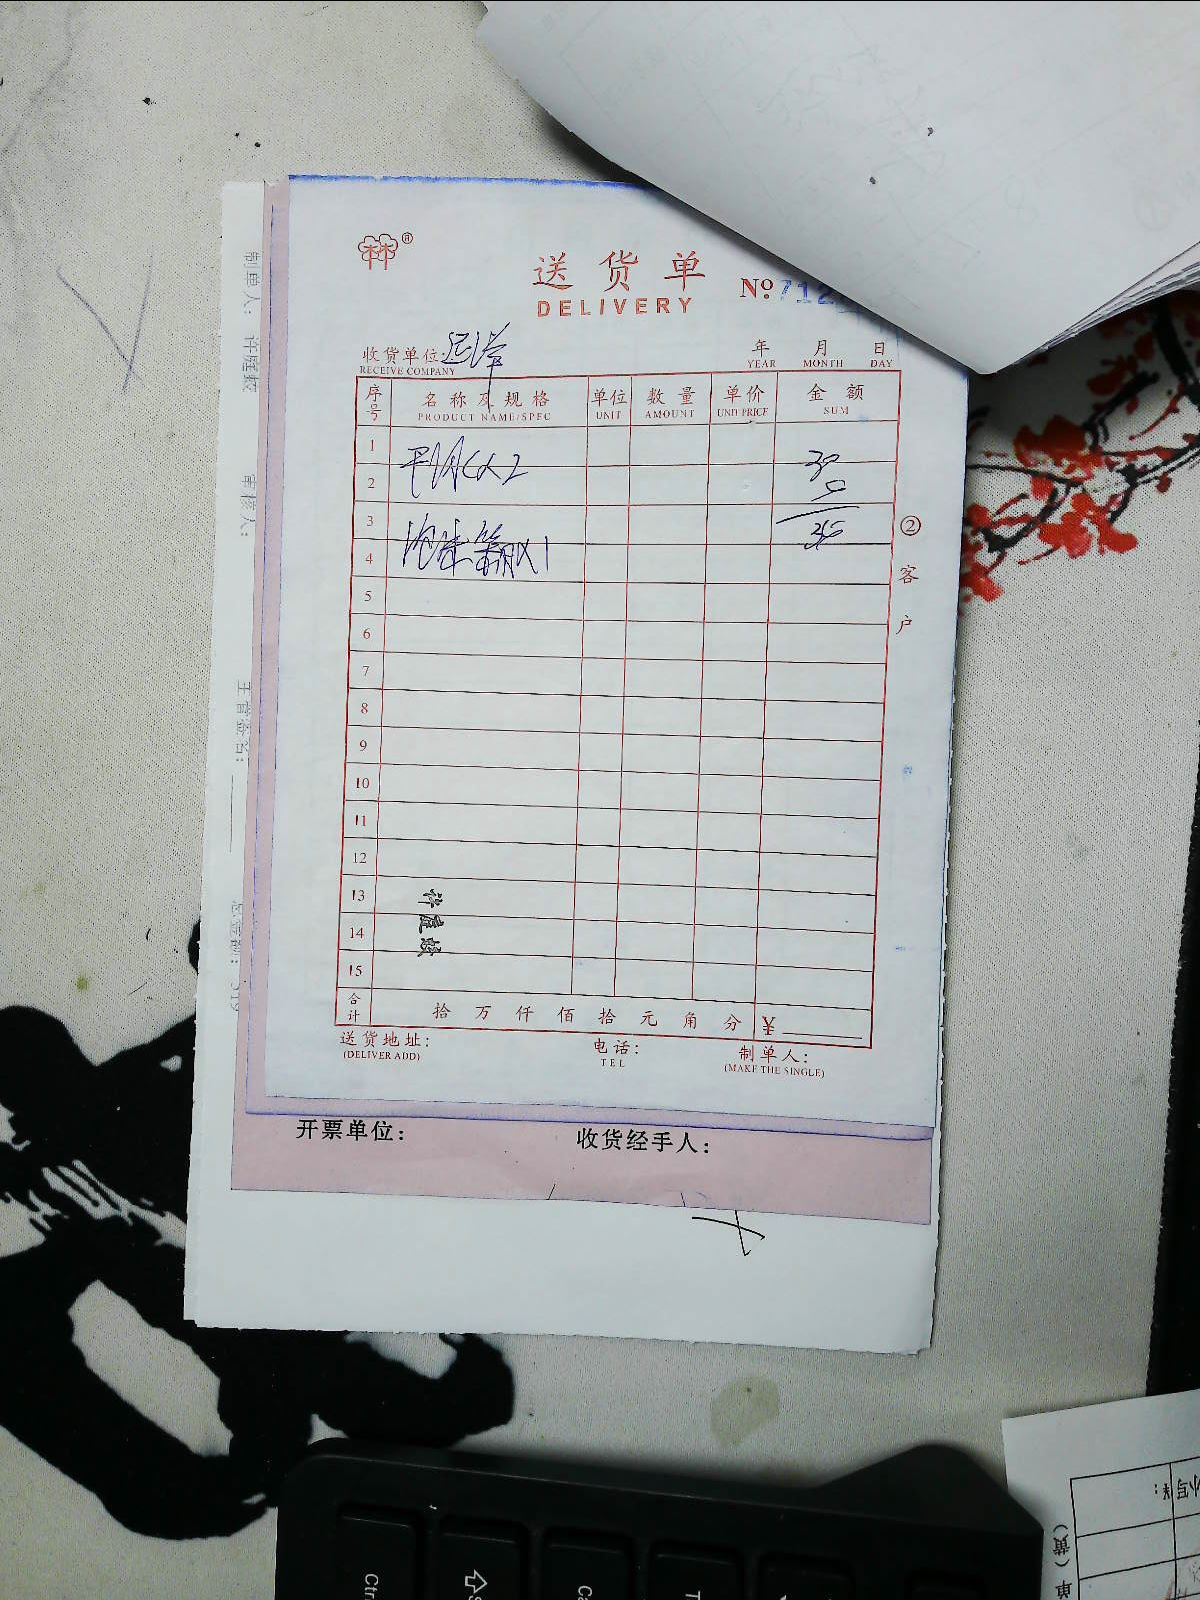 送货单
DELIVERY
№ 712
收货单位
RECEIVE COMPANY
年 月 日
YEAR MONTH DAY
序号 名称及规格 单位 数量 单价 金额
PRODUCT NAME/SPEC UNIT AMOUNT UNIT PRICE SUM
1
2 30
5
3 35
4 泡沫箱X1
5
6
7
8
9
10
11
12
13
14
15
许庭敏
合计 拾 万 仟 佰 拾 元 角 分 ¥
送货地址: 电话: 制单人:
(DELIVER ADD) TEL (MAKE THE SINGLE)
②客户
开票单位: 收货经手人:
制单人:
审核人:
主管签名:
小写¥:
单(黄)
Ctr